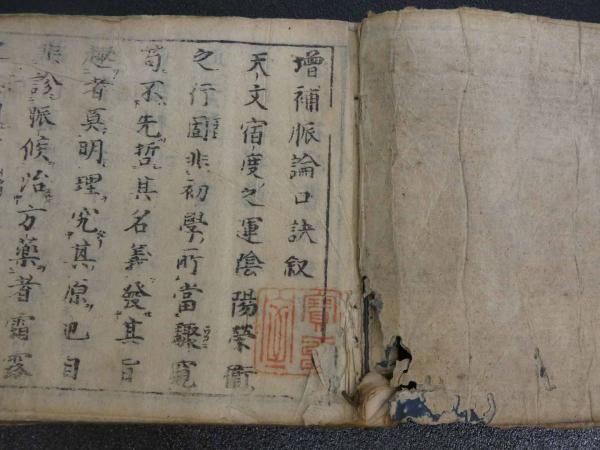 增補脈論口訣叙
天文宿度之運陰陽榮衞
之行固非初學所當驟窺
苟不先哲其名義發其旨
趣者莫明理究其原也自
非診脈候治方藥者霜露